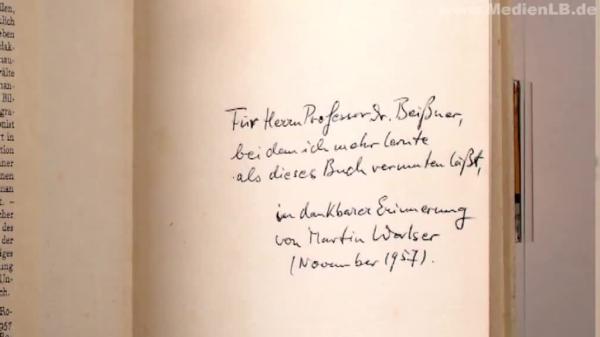 www.MedienLB.de
Für Herrn Professor Dr. Beißner,
bei dem ich mehr lernte
als dieses Buch vermuten läßt,
in dankbarer Erinnerung
von Martin Walser
(November 1957).